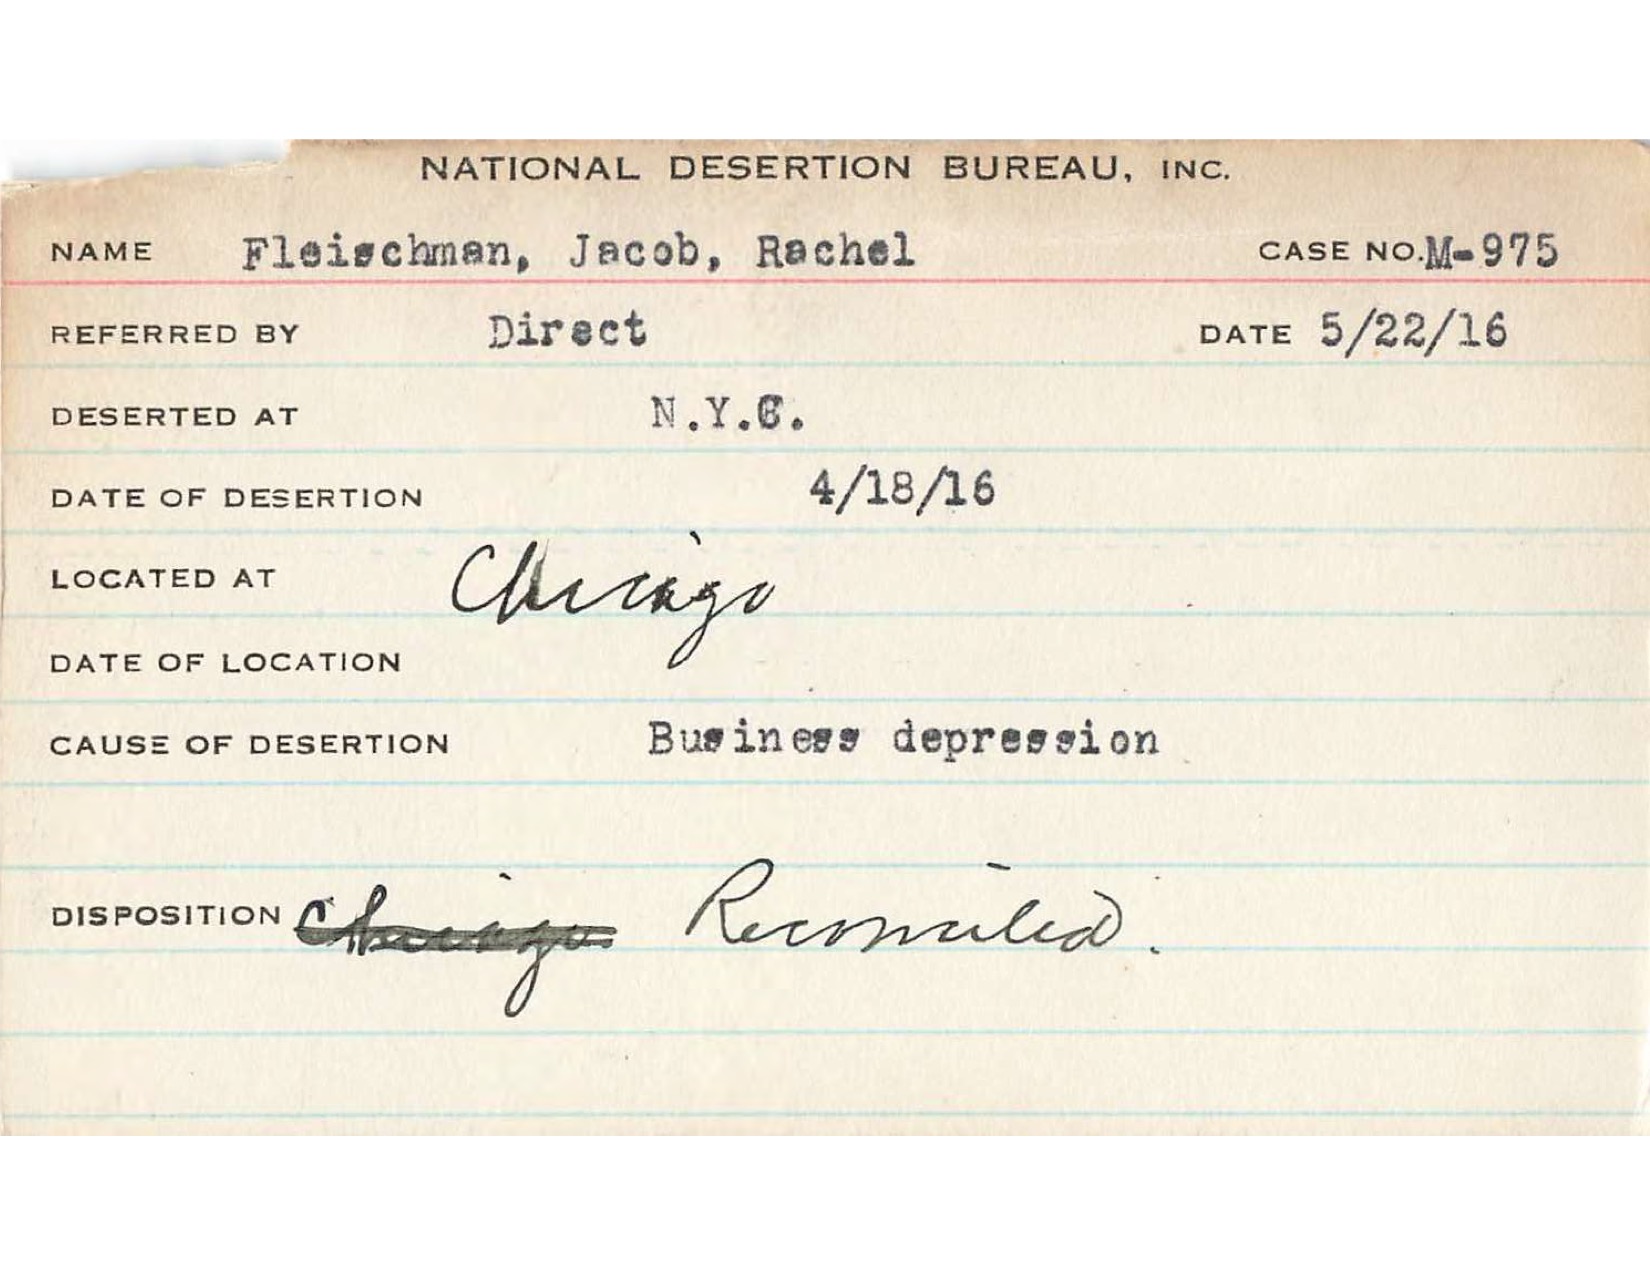 NATIONAL DESERTION BUREAU, INC.
NAME Fleischman, Jacob, Rachel CASE NO. M-975
REFERRED BY Direct DATE 5/22/16
DESERTED AT N.Y.C.
DATE OF DESERTION 4/18/16
LOCATED AT Chicago
DATE OF LOCATION
CAUSE OF DESERTION Business depression
DISPOSITION Chicago Reconciled.